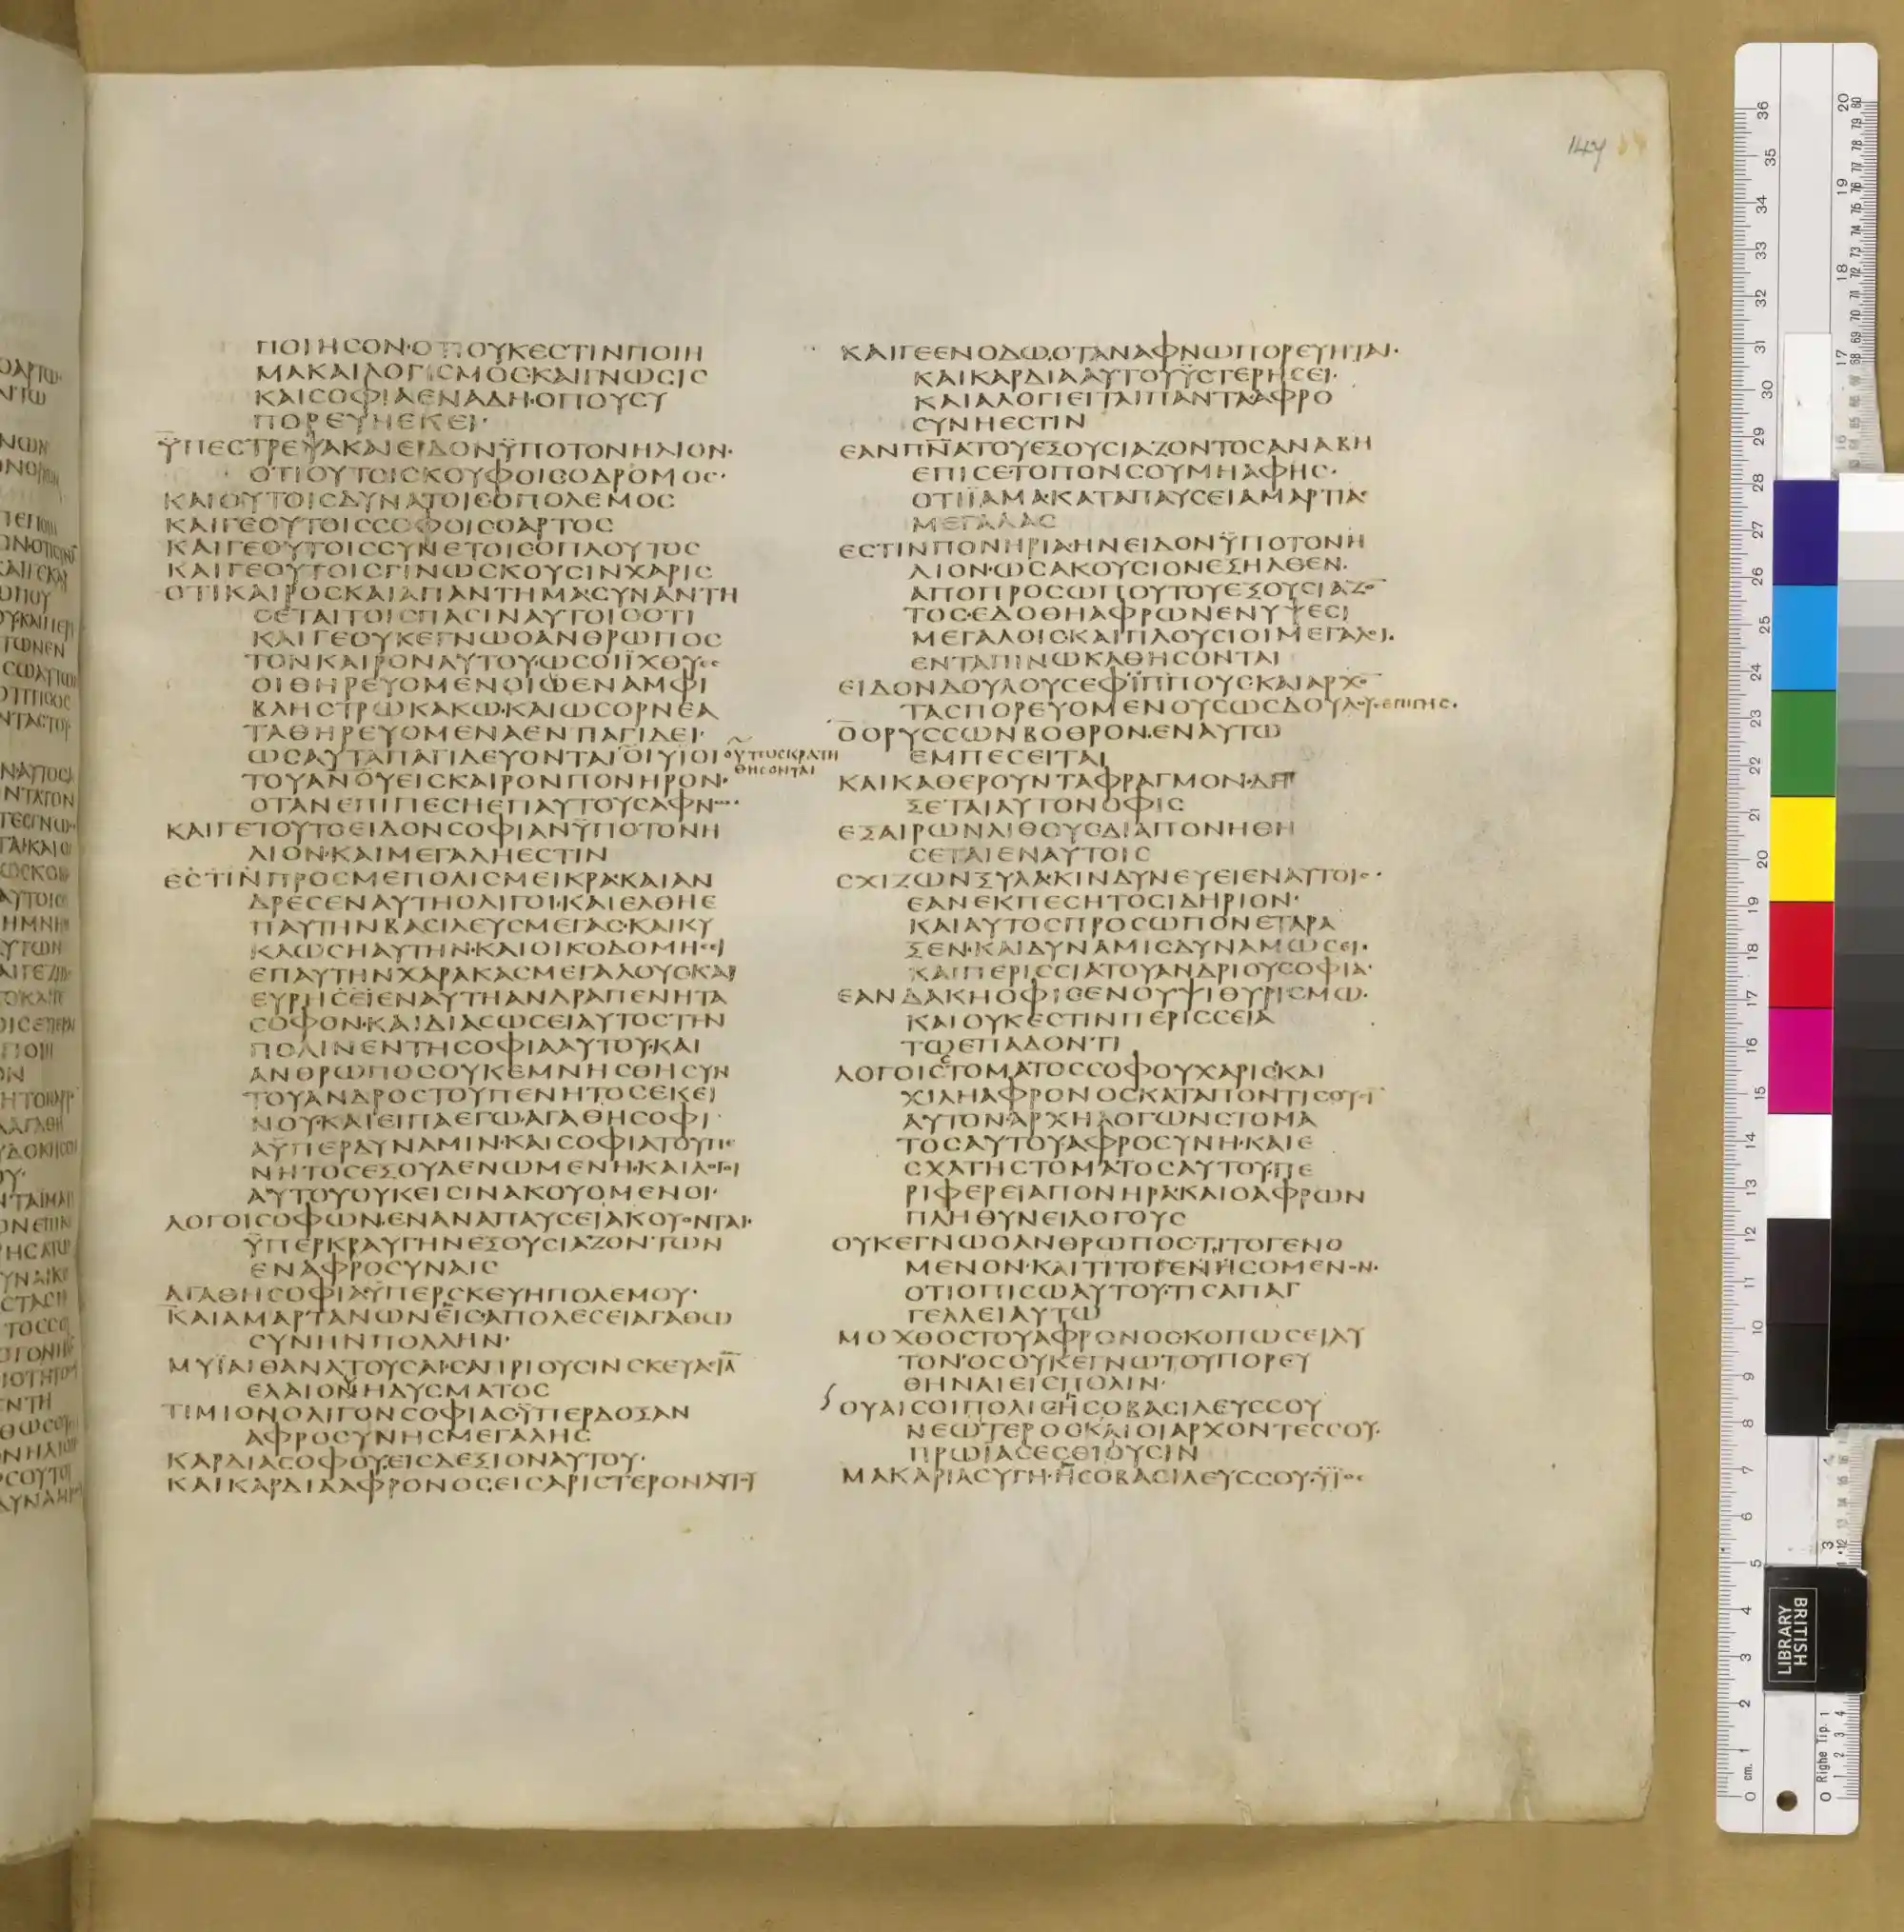 147
ΠΟΙΗϹΟΝ·ΟΤΙΟΥΚΕϹΤΙΝΠΟΙΗ
ΜΑΚΑΙΛΟΓΙϹΜΟϹ·ΚΑΙΓΝΩϹΙϹ
ΚΑΙϹΟΦΙΑΕΝΑΔΗ·ΟΠΟΥϹΥ
ΠΟΡΕΥΗΕΚΕΙ·
ΫΠΕϹΤΡΕΨΑΚΑΙΕΙΔΟΝΫΠΟΤΟΝΗΛΙΟΝ·
ΟΤΙΟΥΤΟΙϹΚΟΥΦΟΙϹΟΔΡΟΜΟϹ·
ΚΑΙΟΥΤΟΙϹΔΥΝΑΤΟΙϹΟΠΟΛΕΜΟϹ
ΚΑΙΓΕΟΥΤΟΙϹϹΟΦΟΙϹΟΑΡΤΟϹ
ΚΑΙΓΕΟΥΤΟΙϹϹΥΝΕΤΟΙϹΟΠΛΟΥΤΟϹ
ΚΑΙΓΕΟΥΤΟΙϹΓΙΝΩϹΚΟΥϹΙΝΧΑΡΙϹ
ΟΤΙΚΑΙΡΟϹΚΑΙΑΠΑΝΤΗΜΑϹΥΝΑΝΤΗ
ϹΕΤΑΙΤΟΙϹΠΑϹΙΝΑΥΤΟΙϹΟΤΙ
ΚΑΙΓΕΟΥΚΕΓΝΩΟΑΝΘΡΩΠΟϹ
ΤΟΝΚΑΙΡΟΝΑΥΤΟΥ·ΩϹΟΙΪΧΘΥεϲ
ΟΙΘΗΡΕΥΟΜΕΝΟΙΕΝΑΜΦΙ
ΒΛΗϹΤΡΩΚΑΚΩ·ΚΑΙΩϹΟΡΝΕΑ
ΤΑΘΗΡΕΥΟΜΕΝΑΕΝΠΑΓΙΔΕΙ·
ΩϹΑΥΤΑΠΑΓΙΔΕΥΟΝΤΑΙΟΙΥΪΟΙ
ΟΥΤΩϹΚΡΑΤΗ
ΘΗϹΟΝΤΑΙ
ΤΟΥΑΝΟΥΕΙϹΚΑΙΡΟΝΠΟΝΗΡΟΝ·
ΟΤΑΝΕΠΙΠΕϹΗΕΠΑΥΤΟΥϹΑΦΝω·
ΚΑΙΓΕΤΟΥΤΟΕΙΔΟΝϹΟΦΙΑΝΫΠΟΤΟΝΗ
ΛΙΟΝ·ΚΑΙΜΕΓΑΛΗΕϹΤΙΝ
ΕϹΤΙΝΠΡΟϹΜΕΠΟΛΙϹΜΕΙΚΡΑ·ΚΑΙΑΝ
ΔΡΕϹΕΝΑΥΤΗΟΛΙΓΟΙ·ΚΑΙΕΛΘΗΕ
ΠΑΥΤΗΝΒΑϹΙΛΕΥϹΜΕΓΑϹ·ΚΑΙΚΥ
ΚΛΩϹΗΑΥΤΗΝ·ΚΑΙΟΙΚΟΔΟΜΗϲΙ
ΕΠΑΥΤΗΝΧΑΡΑΚΑϹΜΕΓΑΛΟΥϹΚΑΙ
ΕΥΡΗϹΕΙΕΝΑΥΤΗΑΝΔΡΑΠΕΝΗΤΑ
ϹΟΦΟΝ·ΚΑΙΔΙΑϹΩϹΕΙΑΥΤΟϹΤΗΝ
ΠΟΛΙΝΕΝΤΗϹΟΦΙΑΑΥΤΟΥ·ΚΑΙ
ΑΝΘΡΩΠΟϹΟΥΚΕΜΝΗϹΘΗϹΥΝ
ΤΟΥΑΝΔΡΟϹΤΟΥΠΕΝΗΤΟϹΕΚΕΙ
ΝΟΥ·ΚΑΙΕΙΠΑΕΓΩ·ΑΓΑΘΗϹΟΦΙ
ΑΫΠΕΡΔΥΝΑΜΙΝ·ΚΑΙϹΟΦΙΑΤΟΥΠΕ
ΝΗΤΟϹΕΞΟΥΔΕΝΩΜΕΝΗ·ΚΑΙΛΟΓΟΙ
ΑΥΤΟΥΟΥΚΕΙϹΙΝΑΚΟΥΟΜΕΝΟΙ·
ΛΟΓΟΙϹΟΦΩΝ·ΕΝΑΝΑΠΑΥϹΕΙΑΚΟΥΟΝΤΑΙ·
ΫΠΕΡΚΡΑΥΓΗΝΕΞΟΥϹΙΑΖΟΝΤΩΝ
ΕΝΑΦΡΟϹΥΝΑΙϹ
ΑΓΑΘΗϹΟΦΙΑΫΠΕΡϹΚΕΥΗΠΟΛΕΜΟΥ·
ΚΑΙΑΜΑΡΤΑΝΩΝΕΙϹ·ΑΠΟΛΕϹΕΙΑΓΑΘΩ
ϹΥΝΗΝΠΟΛΛΗΝ·
ΜΥΪΑΙΘΑΝΑΤΟΥϹΑΙ·ϹΑΠΡΙΟΥϹΙΝϹΚΕΥΑϹΙΑ̅
ΕΛΑΙΟΥΗΔΥϹΜΑΤΟϹ
ΤΙΜΙΟΝΟΛΙΓΟΝϹΟΦΙΑϹΫΠΕΡΔΟΞΑΝ
ΑΦΡΟϹΥΝΗϹΜΕΓΑΛΗϹ
ΚΑΡΔΙΑϹΟΦΟΥ·ΕΙϹΔΕΞΙΟΝΑΥΤΟΥ·
ΚΑΙΚΑΡΔΙΑΑΦΡΟΝΟϹ·ΕΙϹΑΡΙϹΤΕΡΟΝΑΥΤΥ
ΚΑΙΓΕΕΝΟΔΩ·ΟΤΑΝΑΦΝΩΠΟΡΕΥΗΤΑΙ·
ΚΑΙΚΑΡΔΙΑΑΥΤΟΥΫϹΤΕΡΗϹΕΙ·
ΚΑΙΑΛΟΓΙΕΙΤΑΙΠΑΝΤΑΑΦΡΟ
ϹΥΝΗΕϹΤΙΝ
ΕΑΝΠΝ̅ΑΤΟΥΕΞΟΥϹΙΑΖΟΝΤΟϹΑΝΑΒΗ
ΕΠΙϹΕ·ΤΟΠΟΝϹΟΥΜΗΑΦΗϹ·
ΟΤΙΪΑΜΑ·ΚΑΤΑΠΑΥϹΕΙΑΜΑΡΤΙΑϲ
ΜΕΓΑΛΑϹ
ΕϹΤΙΝΠΟΝΗΡΙΑΗΝΕΙΔΟΝΫΠΟΤΟΝΗ
ΛΙΟΝ·ΩϹΑΚΟΥϹΙΟΝΕΞΗΛΘΕΝ·
ΑΠΟΠΡΟϹΩΠΟΥΤΟΥΕΞΟΥϹΙΑΖΟ̅
ΤΟϹ·ΕΔΟΘΗΑΦΡΩΝΕΝΥΨΕϹΙ
ΜΕΓΑΛΟΙϹ·ΚΑΙΠΛΟΥϹΙΟΙΜΕΓΑΛΟΙ·
ΕΝΤΑΠΙΝΩΚΑΘΗϹΟΝΤΑΙ
ΕΙΔΟΝΔΟΥΛΟΥϹΕΦΪΠΠΟΥϹ·ΚΑΙΑΡΧΟ̅
ΤΑϹΠΟΡΕΥΟΜΕΝΟΥϹΩϹΔΟΥΛΟΥϲΕΠΙΓΗϹ·
ΟΟΡΥϹϹΩΝΒΟΘΡΟΝ·ΕΝΑΥΤΩ
ΕΜΠΕϹΕΙΤΑΙ
ΚΑΙΚΑΘΕΡΟΥΝΤΑΦΡΑΓΜΟΝ·ΔΗ
ΞΕΤΑΙΑΥΤΟΝΟΦΙϹ
ΕΞΑΙΡΩΝΛΙΘΟΥϹΔΙΑΠΟΝΗΘΗ
ϹΕΤΑΙΕΝΑΥΤΟΙϹ
ϹΧΙΖΩΝΞΥΛΑ·ΚΙΝΔΥΝΕΥΕΙΕΝΑΥΤΟΙϲ·
ΕΑΝΕΚΠΕϹΗΤΟϹΙΔΗΡΙΟΝ·
ΚΑΙΑΥΤΟϹΠΡΟϹΩΠΟΝΕΤΑΡΑ
ΞΕΝ·ΚΑΙΔΥΝΑΜΙϹΔΥΝΑΜΩϹΕΙ·
ΚΑΙΠΕΡΙϹϹΙΑΤΟΥΑΝΔΡΙΟΥϹΟΦΙΑ·
ΕΑΝΔΑΚΗΟΦΙϹΕΝΟΥΨΙΘΥΡΙϹΜΩ·
ΚΑΙΟΥΚΕϹΤΙΝΠΕΡΙϹϹΕΙΑ
ΤΩΕΠΑΔΟΝΤΙ
ΛΟΓΟΙϹΤΟΜΑΤΟϹϹΟΦΟΥΧΑΡΙϹ·ΚΑΙ
ΧΙΛΗΑΦΡΟΝΟϹΚΑΤΑΠΟΝΤΙϹΟΥϹΙ
ΑΥΤΟΝ·ΑΡΧΗΛΟΓΩΝϹΤΟΜΑ
ΤΟϹΑΥΤΟΥΑΦΡΟϹΥΝΗ·ΚΑΙΕ
ϹΧΑΤΗϹΤΟΜΑΤΟϹΑΥΤΟΥ·ΠΕ
ΡΙΦΕΡΕΙΑΠΟΝΗΡΑ·ΚΑΙΟΑΦΡΩΝ
ΠΛΗΘΥΝΕΙΛΟΓΟΥϹ
ΟΥΚΕΓΝΩΟΑΝΘΡΩΠΟϹΤΙΤΟΓΕΝΟ
ΜΕΝΟΝ·ΚΑΙΤΙΤΟΓΕΝΗϹΟΜΕΝΟΝ·
ΟΤΙΟΠΙϹΩΑΥΤΟΥ·ΤΙϹΑΠΑΓ
ΓΕΛΛΕΙΑΥΤΩ
ΜΟΧΘΟϹΤΟΥΑΦΡΟΝΟϹΚΟΠΩϹΕΙΑΥ
ΤΟΝ·ΟϹΟΥΚΕΓΝΩΤΟΥΠΟΡΕΥ
ΘΗΝΑΙΕΙϹΠΟΛΙΝ·
ΟΥΑΙϹΟΙΠΟΛΙϹΗϹΟΒΑϹΙΛΕΥϹϹΟΥ
ΝΕΩΤΕΡΟϹΚΑΙΟΙΑΡΧΟΝΤΕϹϹΟΥ·
ΠΡΩΪΑϹΕϹΘΙΟΥϹΙΝ
ΜΑΚΑΡΙΑϹΥΓΗ·ΗϹΟΒΑϹΙΛΕΥϹϹΟΥ·ΫΪΟϲ
BRITISH
LIBRARY